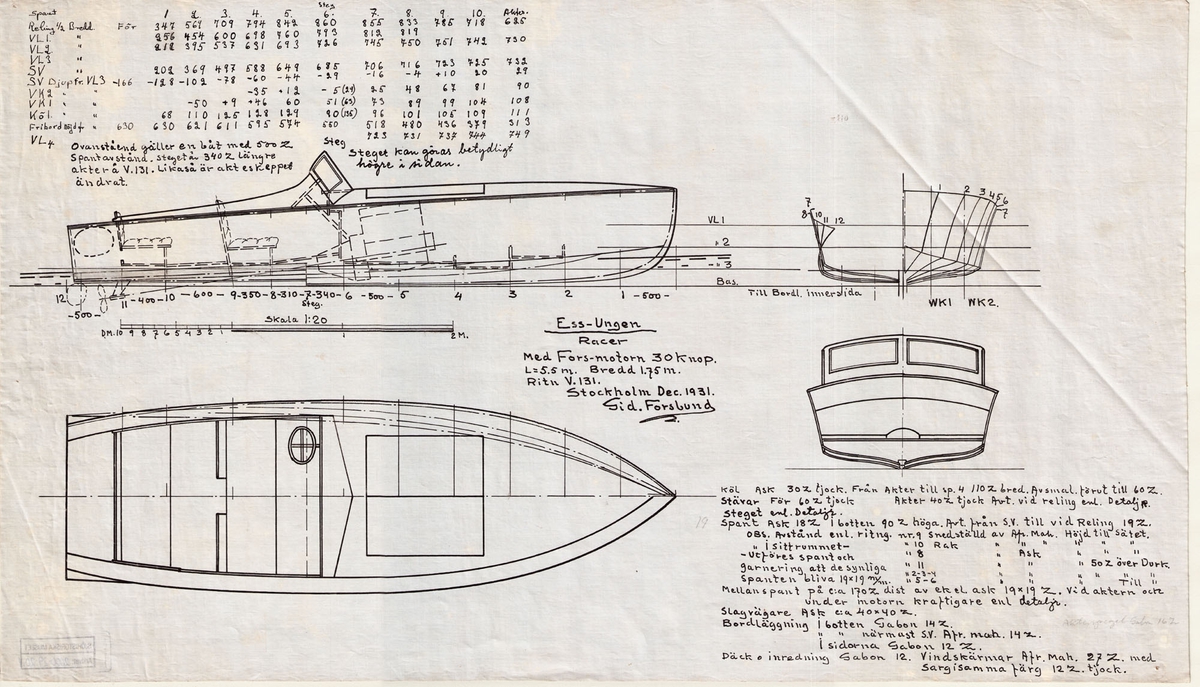 Spant 1 2. 3. 4. 5. Steg 6. 7. 8. 9. 10. Akter.
Reling ½ Bredd För 347 569 709 794 842 860 855 833 785 718 625
VL1 " 256 454 600 698 760 793 812 819
VL2 " 218 395 537 631 693 726 745 750 751 742 730
VL3 "
SV " 202 369 497 588 649 685 706 716 723 725 732
SV Djup fr. VL3 -166 -128 -102 -78 -60 -44 -29 -16 -4 +10 20 29
VK2 " " -35 +12 -5(29) 25 48 67 81 90
VK1 " " -50 +9 +46 60 51(63) 73 89 99 104 108
Köl " " 68 110 125 128 129 90(135) 96 101 105 109 111
Fribord höjd fr " 630 630 621 611 595 574 550 518 480 436 379 313
VL4 723 731 737 744 749
Ovanståend gäller en båt med 500 Z
Spantavstånd. Steget är 340 Z Längre
akter å V.131. Likaså är akterskeppet
ändrat.
Steg
Steget kan göras betydligt
högre i sidan.
VL 1
" 2
" 3
Bas.
12 -500- 11 -400- 10 -600- 9-350-8-310-7-340-6 -500- 5 4 3 2 1 -500-
Steg.
Skala 1:20
DM. 10 9 8 7 6 5 4 3 2 1 1 2 M.
7 8 10 11 12
1 2 3 4 5 6 7
Till Bordl. innersida
WK1 WK2.
Ess-Ungen
Racer
Med Fors-motorn 30 Knop.
L=5.5 m. Bredd 1.75 m.
Ritn V.131.
Stockholm Dec. 1931.
Sid. Forslund
19
Köl Ask 30 Z tjock. Från Akter till sp. 4 110 Z bred. Avsmal. förut till 60 Z.
Stävar För 60 Z tjock Akter 40 Z tjock Avt. vid reling enl. Detaljr.
Steget enl. Detaljr.
Spant Ask 18 Z I botten 90 Z höga. Avt. från S.V. till vid Reling 19 Z.
OBS. Avstånd enl. ritng. nr. 9 Snedställd av Afr. Mah. Höjd till Sätet.
" I Sittrummet- " 10 Rak " " " " "
-Utföres spant och " 8 " Ask " "
garnering att de synliga " 11 " " " " 50 Z över Durk.
Spanten bliva 19×19 m/m. " 2-3-4 " " " "
" 5-6 " " " Till "
Mellanspant på c:a 170 Z dist av ek el ask 19×19 Z. Vid aktern och
under motorn kraftigare enl detaljr.
Slagvägare Ask c:a 40×40 Z.
Bordläggning I botten Gabon 14 Z.
" " närmast S.V. Afr. mah. 14 Z.
I sidorna Gabon 12 Z.
Däck o inredning Gabon 12. Vindskärmar Afr. Mah. 27 Z. med
Sargisamma färg 12 Z. tjock.